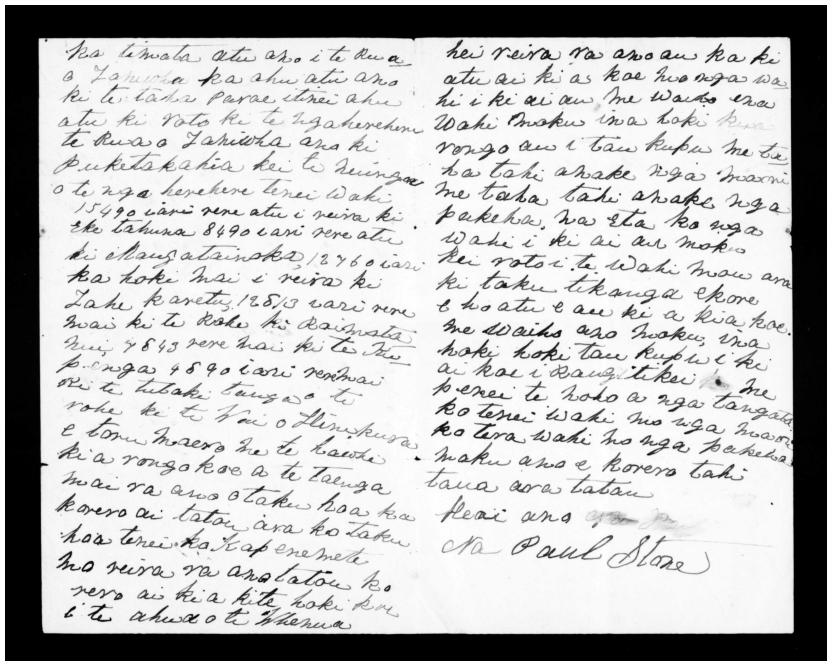 ka timata atu ano i te Rua
o Taniwha ka ahu atu ano
ki te taha Parae itinei ahu
atu ki roto ki te ngaherehere
te Rua o Taniwha ano ki
puketakahia kei te
o te nga herehere tenei wahi
15490 iari rere atu i reira ki
eke tahuna 8490 iari rere atu
ki Maungatainoka, 12760 iari
ka hoki mai i reira ki
Tahe karetu, 12513 iari rere
mai ki te Rohe ki Raimata
nui 4843 rere mai ki te
penga 4890 iari rere mai
ki te tutaki tanga o te
rohe ki te Wai o Hinekura
e toru maero me te hawhi
kia rongo koe a te taenga
mai ra ano o taku hoa ka
korero ai tatou ara ko taku
hoa tenei ko Kapenemete
mo reira ra ano tatou ko
rero ai kia kite hoki koe
i te ahua o te Whenua
hei reira ra ano au ka ki
atu ai ki a koe mo nga wa
hi i ki ai au me waiho ena
wahi moku ina hoki
rongo au i tau kupu me ta
ha tahi anake nga maori
me taha tahi anake nga
pakeha, na Eta ko nga
wahi i ki ai au moku
kei roto i te wahi mau ara
ki taku tikanga ekore
e hoatu e au ki a kia koe.
me waiho ano moku, ina
hoki hoki tau kupu i ki
ai koe i Rangitikei me
penei te hoko a nga tangata
ko tenei wahi mo nga maori
ko tera wahi mo nga pakeha
maku ano e korero tahi
taua ara tatou
Heoi ano
Na Paul Stone